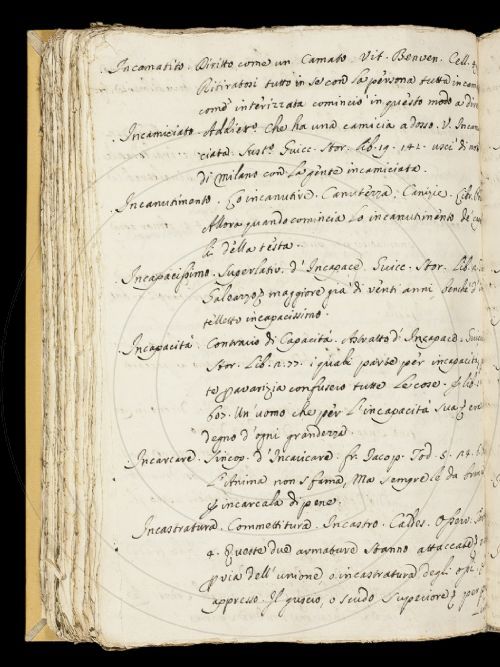 Incamatito. Diritto come un Camato. Vit. Benven. Cell.
Ritiratosi tutto in se con la persona tutta incama
come interizzata cominciò in questo modo a dire
Incamiciato. Addiett.º che ha una camicia adosso. V. Incami
ciata. Sust.º Guicc. Stor. Lib. 19. 142. uscì di notte
di Milano con la gente incamiciata.
Incanutimento. Lo incanutire. Canutezza, Canizie.
Allora quando comincia lo incanutimento de' cape
li della testa.
Incapacissimo. Superlativ. d'Incapace. Guicc. Stor. Lib.
Galeazzo maggiore già di venti anni benchè d'in
telletto incapacissimo.
Incapacità. Contrario di Capacità. Astratto d'Incapace. Guicc
Stor. Lib. n. 77. i quali parte per incapacità
te p avarizia confusero tutte le cose. E lib.
607. Un'uomo che per l'incapacità sua era
degno d'ogni grandezza.
Incarcare. Sincop. d'Incaricare. fr. Jacop. Tod. 5. 14.
L'Anima non sfama, Ma sempre le da
E incarcala di pene.
Incastratura. Commettitura. Incastro. Calles. Osserv.
4. Queste due armature stanno attaccate
p via dell'unione o incastratura degli
appresso. Il guscio, o scudo superiore è per